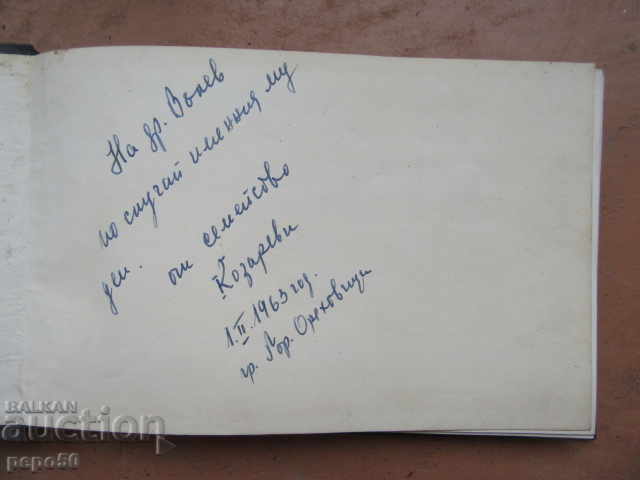 На др. Вълев
по случай именния му
ден.
от семейство
Козареви
1.II.1963 год.
гр. Гор. Оряховица
BALKAN
auction
pepo50